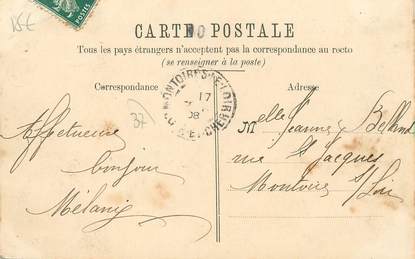 15€
POSTES
CARTE POSTALE
Tous les pays étrangers n'acceptent pas la correspondance au recto
(se renseigner à la poste)
Correspondance
Adresse
MONTOIRE-S-LE-LOIR
17
08
LOIR-ET-CHER
37
Affectueux
bonjour
Mélanie
Melle Jeanne
rue St Jacques
Montoire s/Loir